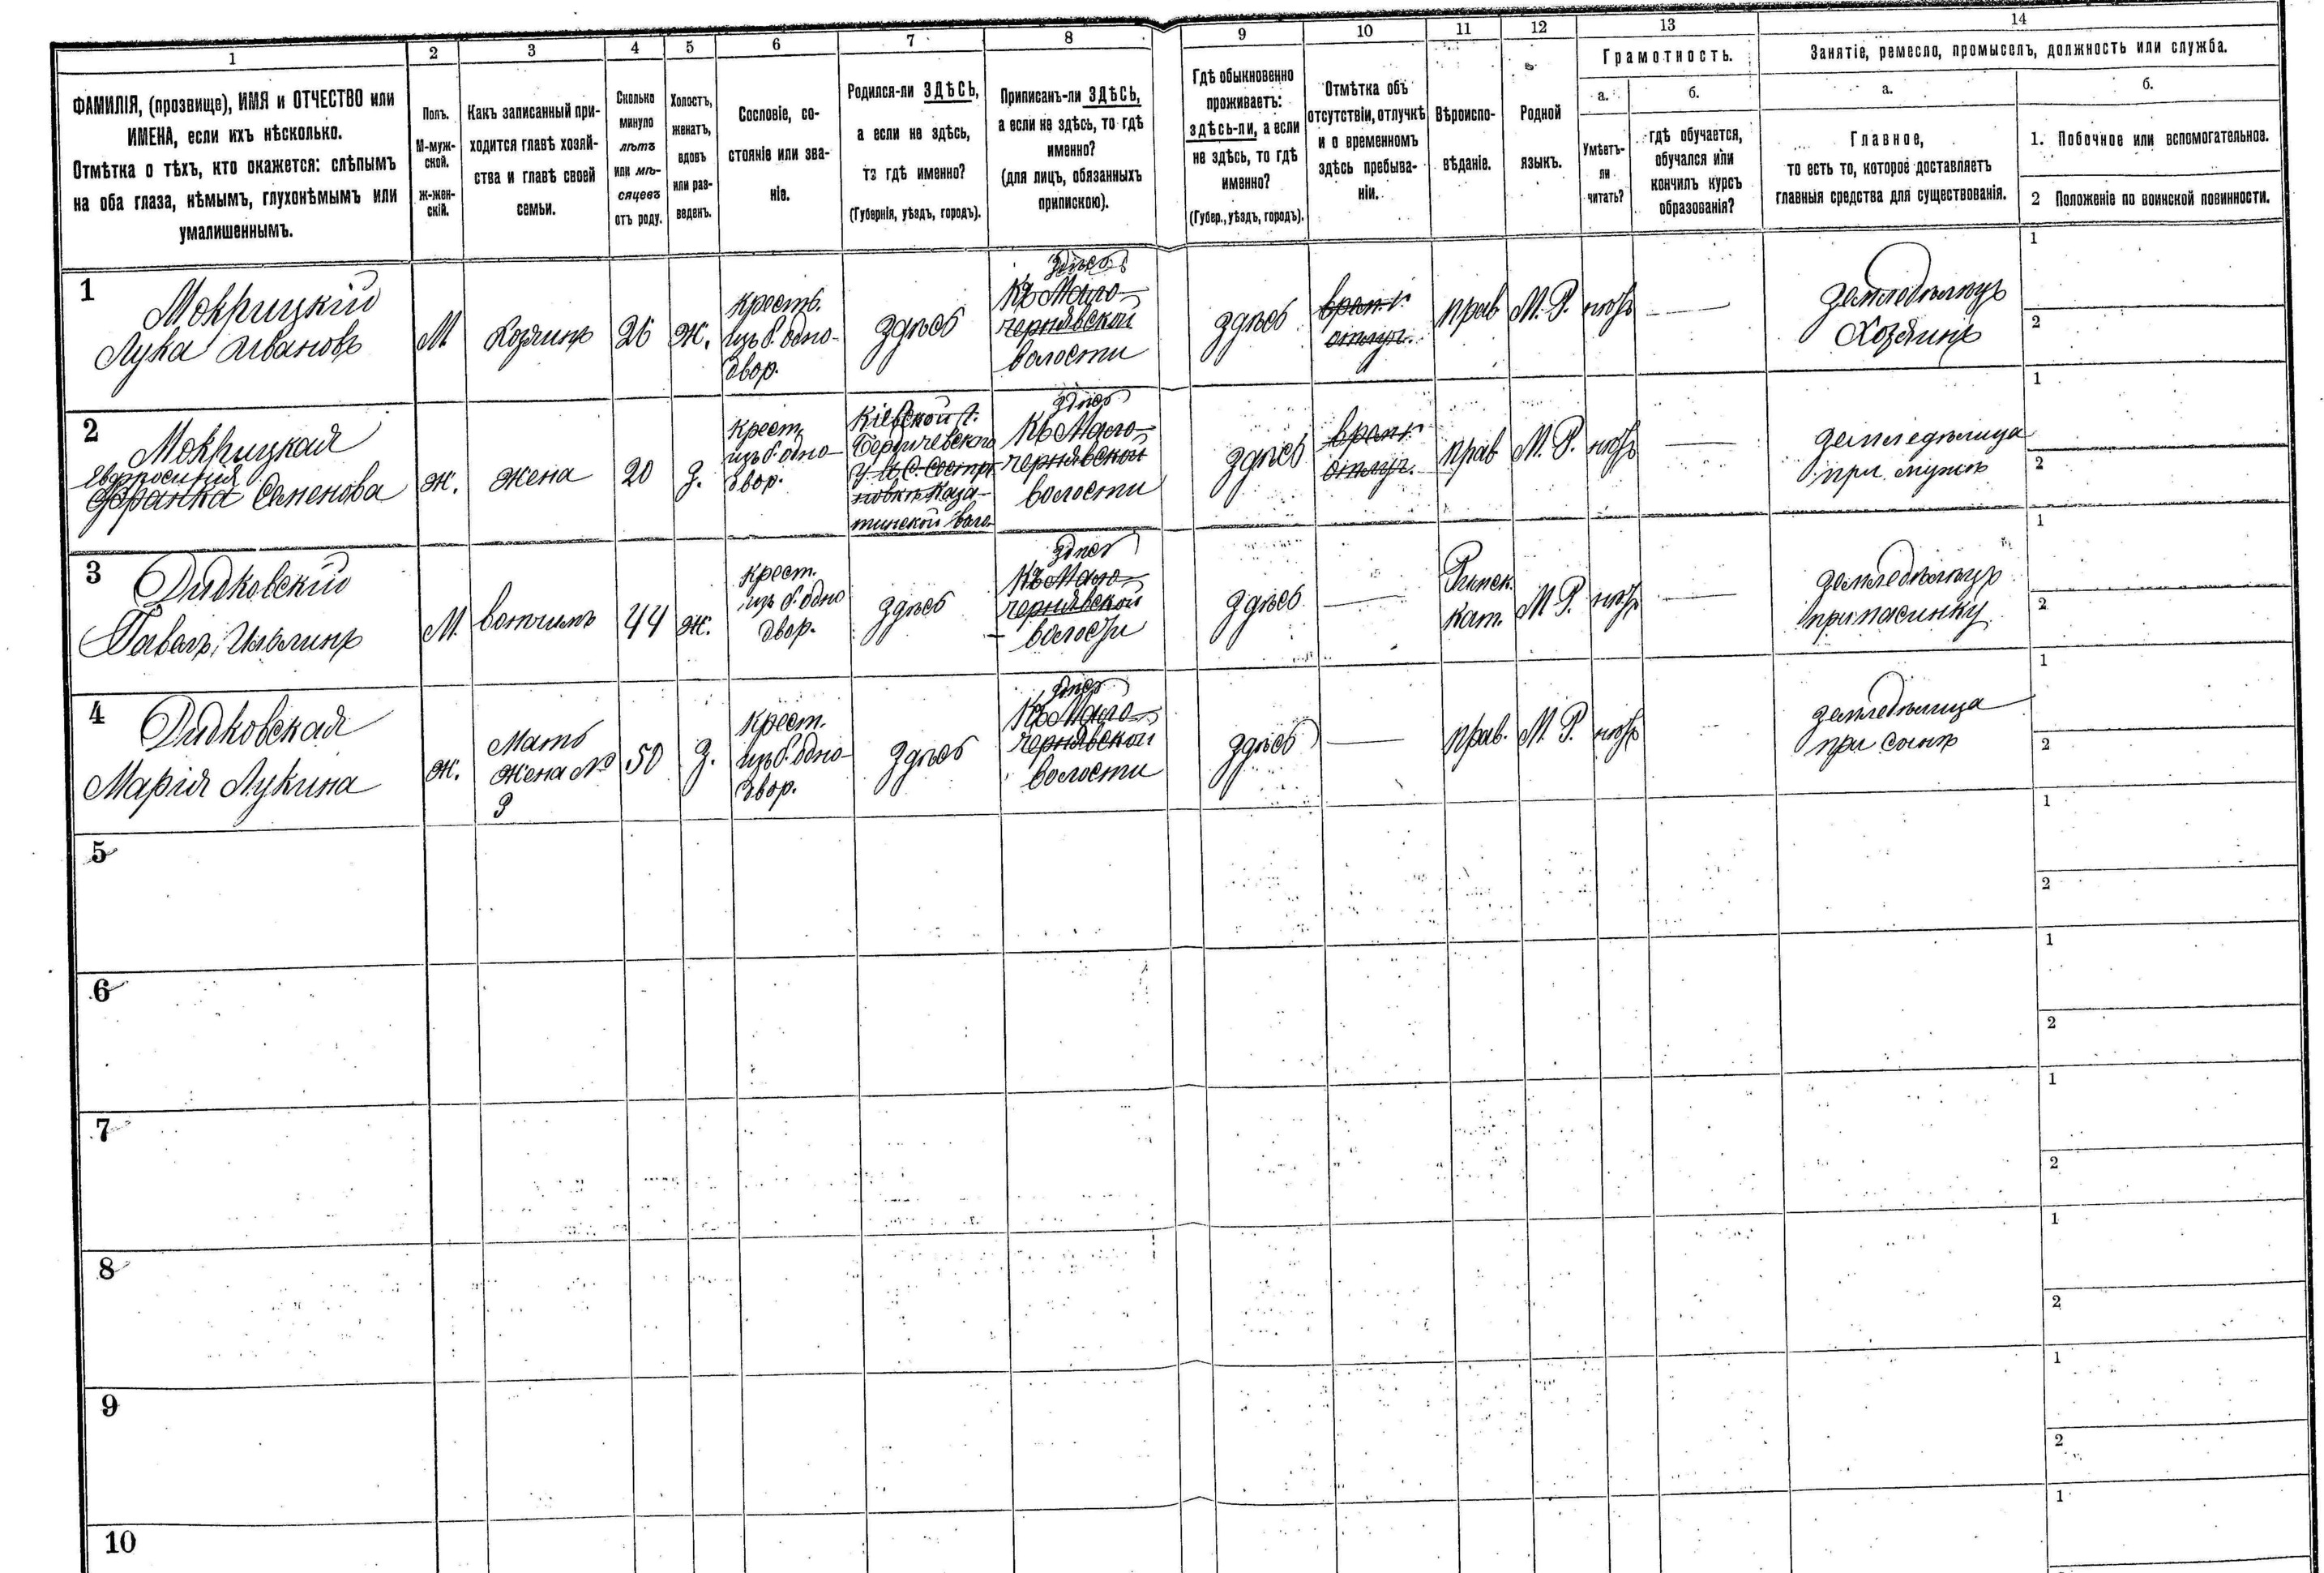 1
2
3
4
5
6
7
8
9
10
11
12
13
14
ФАМИЛІЯ, (прозвище), ИМЯ и ОТЧЕСТВО или
ИМЕНА, если ихъ нѣсколько.
Отмѣтка о тѣхъ, кто окажется: слѣпымъ
на оба глаза, нѣмымъ, глухонѣмымъ или
умалишеннымъ.
Полъ.
М-муж-
ской.
ж-жен-
скій.
Какъ записанный при-
ходится главѣ хозяй-
ства и главѣ своей
семьи.
Сколько
минуло
лѣтъ
или мѣ-
сяцевъ
отъ роду.
Холостъ,
женатъ,
вдовъ
или раз-
веденъ.
Сословіе, со-
стояніе или зва-
ніе.
Родился-ли ЗДѢСЬ,
а если не здѣсь,
то гдѣ именно?
(Губернія, уѣздъ, городъ).
Приписанъ-ли ЗДѢСЬ,
а если не здѣсь, то гдѣ
именно?
(для лицъ, обязанныхъ
припискою).
Гдѣ обыкновенно
проживаетъ:
здѣсь-ли, а если
не здѣсь, то гдѣ
именно?
(Губер., уѣздъ, городъ).
Отмѣтка объ
отсутствіи, отлучкѣ
и о временномъ
здѣсь пребыва-
ніи.
Вѣроиспо-
вѣданіе.
Родной
языкъ.
Грамотность.
а.
Умѣетъ-
ли
читать?
б.
гдѣ обучается,
обучался или
кончилъ курсъ
образованія?
Занятіе, ремесло, промыселъ, должность или служба.
а.
Главное,
то есть то, которое доставляетъ
главныя средства для существованія.
б.
1. Побочное или вспомогательное.
2 Положеніе по воинской повинности.
1
Мокрицкій
Лука Ивановъ
М.
Хозяинъ
26
ж.
крест.
изъ б. одно-
двор.
здѣсь
здѣсь
Къ Мало-
чернявской
волости
здѣсь
врем.
отлуч.
прав
М. Р.
нѣтъ
земледѣлецъ
Хозяинъ
1
2
2
Мокрицкая
Евфросинія
Франка Семенова
ж.
жена
20
з.
крест.
изъ б. одно-
двор.
Кіевской г.
Бердичевскаго
тинской воло-
здѣсь
Къ Мало-
чернявской
волости
здѣсь
врем.
отлуч.
прав
М. Р.
нѣтъ
земледѣлица
при мужѣ
1
2
3
Дидковскій
Павелъ Ильинъ
М.
вотчимъ
44
ж.
крест.
изъ б. одно
двор.
здѣсь
здѣсь
Къ Мало-
чернявской
волости
здѣсь
Римск.
кат.
М. Р.
нѣтъ
земледѣлецъ
при пасынку
1
2
4
Дидковская
Марія Лукина
ж.
Мать
жена №
3
50
з.
крест.
изъ б. одно-
двор.
здѣсь
здѣсь
Къ Мало-
чернявской
волости
здѣсь
прав.
М. Р.
нѣтъ
земледѣлица
при сынѣ
1
2
5
1
2
6
1
2
7
1
2
8
1
2
9
1
2
10
1